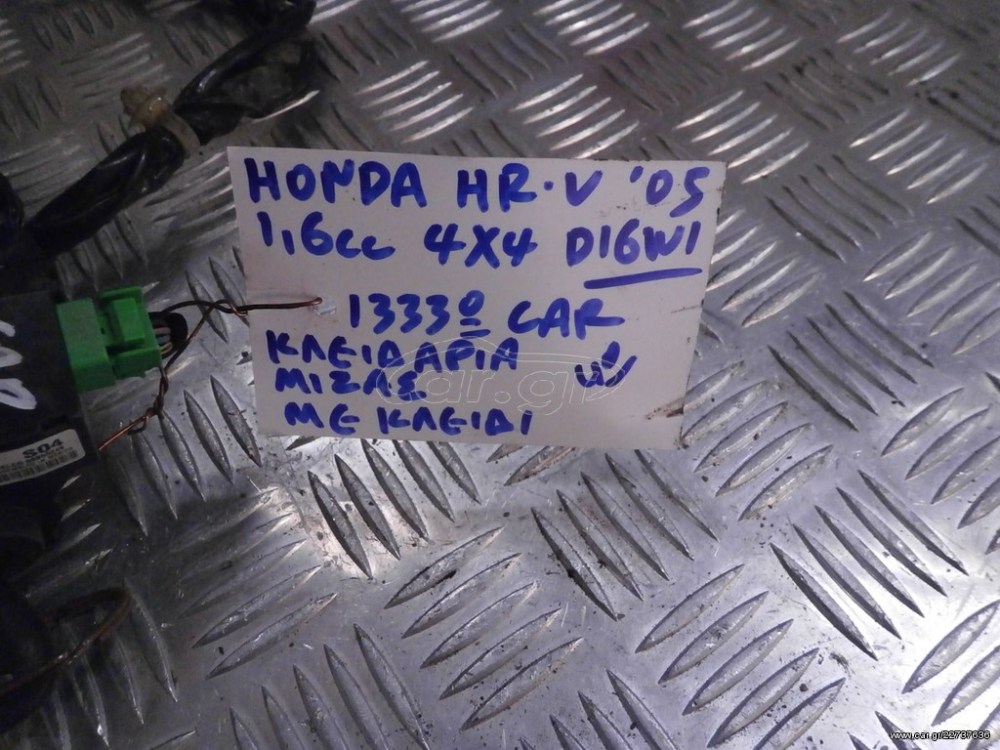 HONDA HR-V '05
1,6cc 4X4 D16W1
1333º CAR
ΚΛΕΙΔΑΡΙΑ
ΜΙΖΑΣ
ΜΕ ΚΛΕΙΔΙ
car.gr
S04
www.car.gr/22737636